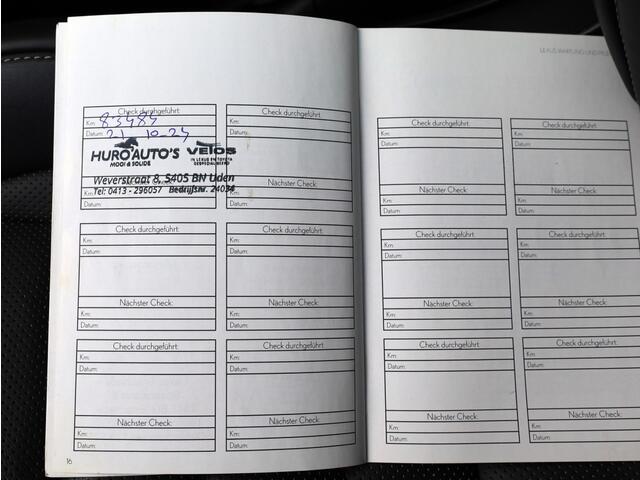 Check durchgeführt:
Km: 83484
Datum: 21-10-24
HURO AUTO'S
MOOI & SOLIDE
VELOS
IN LEXUS EN TOYOTA
GESPECIALISEERD
Weverstraat 8, 5405 BN Uden
Tel: 0413 - 296057 Bedrijfsnr. 24034
Km:
Datum:
Check durchgeführt:
Km:
Datum:
Nächster Check:
Km:
Datum:
Check durchgeführt:
Km:
Datum:
Nächster Check:
Km:
Datum:
Check durchgeführt:
Km:
Datum:
Nächster Check:
Km:
Datum:
Check durchgeführt:
Km:
Datum:
Nächster Check:
Km:
Datum:
Check durchgeführt:
Km:
Datum:
Nächster Check:
Km:
Datum:
16
LEXUS WARTUNG UND
Check durchgeführt:
Km:
Datum:
Nächster Check:
Km:
Datum:
Check durchgeführt:
Km:
Datum:
Nächster Check:
Km:
Datum:
Check durchgeführt:
Km:
Datum:
Nächster Check:
Km:
Datum:
Check durchgeführt:
Km:
Datum:
Nächster Check:
Km:
Datum:
Check durchgeführt:
Km:
Datum:
Nächster Check:
Km:
Datum:
Check durchgeführt:
Km:
Datum:
Nächster Check:
Km:
Datum: